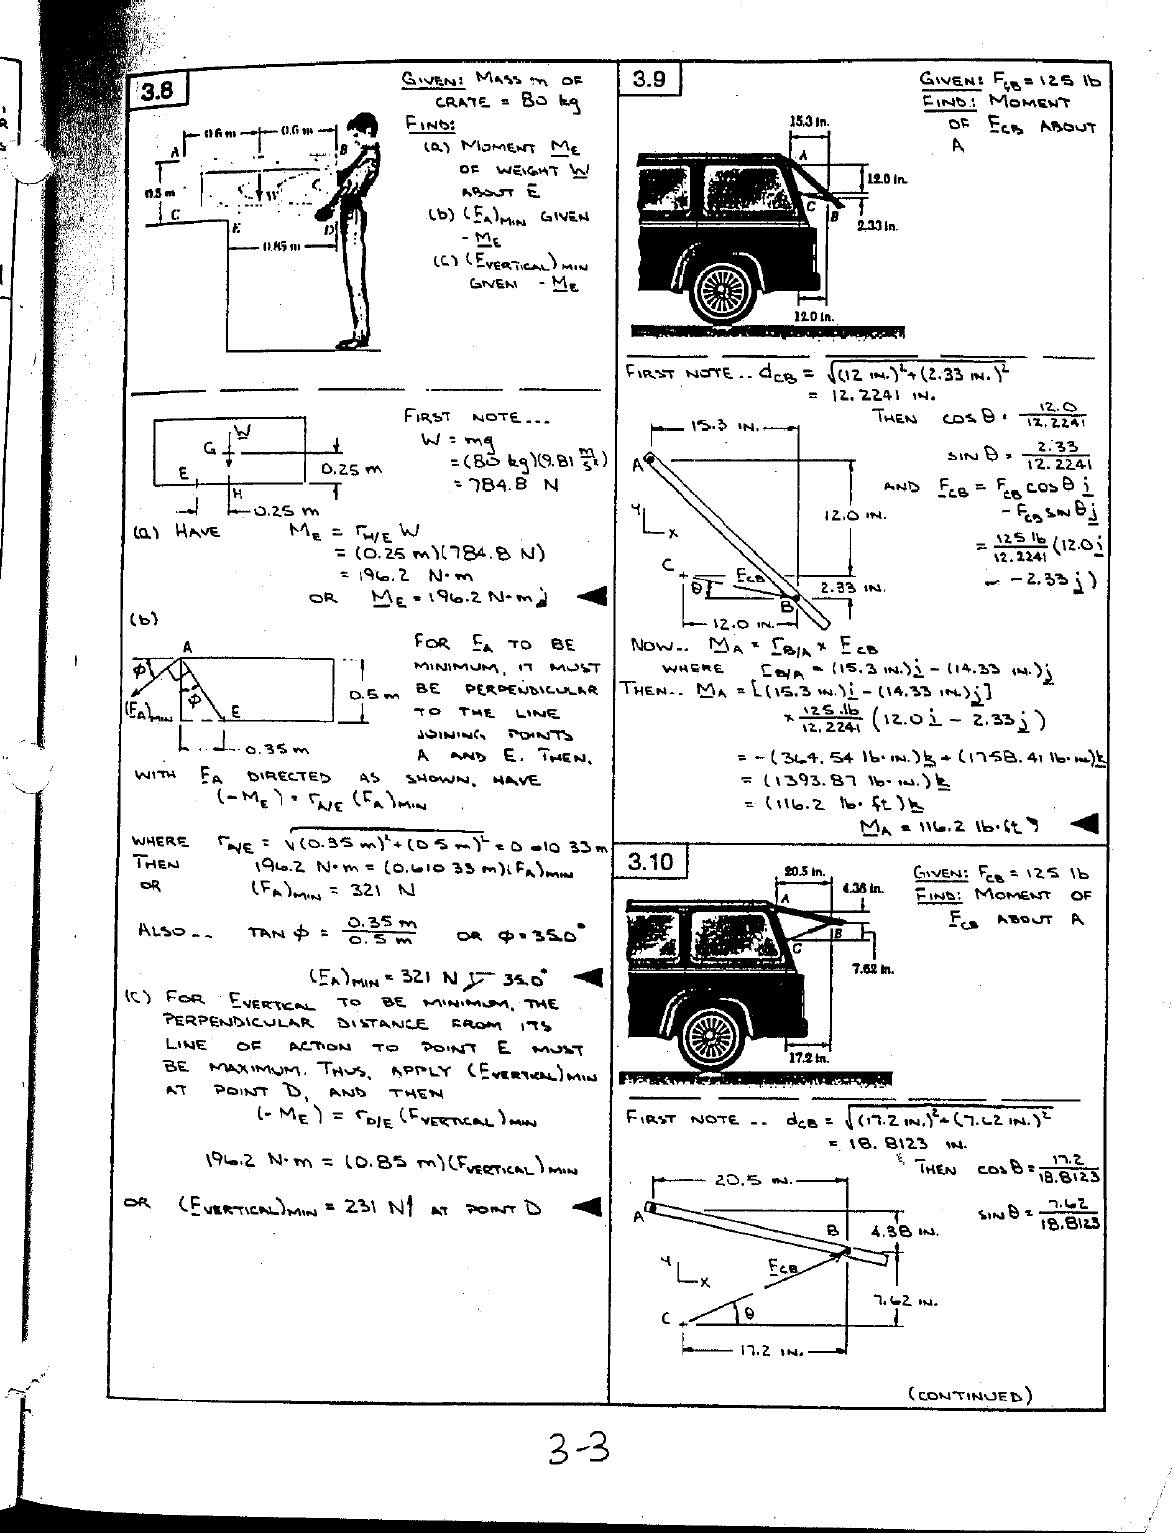 3.8
GIVEN: MASS m OF
CRATE = 80 kg
FIND:
(a) MOMENT M_E
OF WEIGHT W
ABOUT E
(b) (F_A)MIN GIVEN
- M_E
(c) (FVERTICAL)MIN
GIVEN - M_E
0.6 m 0.6 m
A B
0.5 m
C W C
E D
0.85 m
FIRST NOTE...
W = mg
= (80 kg)(9.81 m/s²)
= 784.8 N
W
G
E
H
0.25 m
0.25 m
(a) HAVE M_E = r_H/E W
= (0.25 m)(784.8 N)
= 196.2 N·m
OR M_E = 196.2 N·m ⤸
(b)
A
φ
φ
(F_A)MIN
E
0.5 m
0.35 m
FOR F_A TO BE
MINIMUM, IT MUST
BE PERPENDICULAR
TO THE LINE
JOINING POINTS
A AND E. THEN,
WITH F_A DIRECTED AS SHOWN, HAVE
(-M_E) = r_A/E (F_A)MIN
WHERE r_A/E = √(0.35 m)² + (0.5 m)² = 0.610 33 m
THEN 196.2 N·m = (0.610 33 m)(F_A)MIN
OR (F_A)MIN = 321 N
ALSO.. TAN φ = 0.35 m / 0.5 m OR φ = 35.0°
(F_A)MIN = 321 N 35.0°
(c) FOR FVERTICAL TO BE MINIMUM, THE
PERPENDICULAR DISTANCE FROM ITS
LINE OF ACTION TO POINT E MUST
BE MAXIMUM. THUS, APPLY (FVERTICAL)MIN
AT POINT D, AND THEN
(-M_E) = r_D/E (FVERTICAL)MIN
196.2 N·m = (0.85 m)(FVERTICAL)MIN
OR (FVERTICAL)MIN = 231 N↑ AT POINT D
3.9
GIVEN: F_CB = 125 lb
FIND: MOMENT
OF F_CB ABOUT
A
15.3 in.
A
12.0 in.
C
B
2.33 in.
12.0 in.
FIRST NOTE.. d_CB = √(12 IN.)² + (2.33 IN.)²
= 12.2241 IN.
THEN COS θ = 12.0 / 12.2241
SIN θ = 2.33 / 12.2241
AND F_CB = F_CB COS θ i
- F_CB SIN θ j
= 125 lb / 12.2241 (12.0 i
- -2.33 j)
15.3 IN.
A
12.0 IN.
Y
X
C
F_CB
θ
B
2.33 IN.
12.0 IN.
NOW.. M_A = r_B/A × F_CB
WHERE r_B/A = (15.3 IN.)i - (14.33 IN.)j
THEN.. M_A = [(15.3 IN.)i - (14.33 IN.)j]
× 125 lb / 12.2241 (12.0 i - 2.33 j)
= -(364.54 lb·IN.)k + (1758.41 lb·IN.)k
= (1393.87 lb·IN.)k
= (116.2 lb·ft)k
M_A = 116.2 lb·ft ↺
3.10
GIVEN: F_CB = 125 lb
FIND: MOMENT OF
F_CB ABOUT A
20.5 in.
4.38 in.
A
B
C
7.62 in.
17.2 in.
FIRST NOTE.. d_CB = √(17.2 IN.)² + (7.62 IN.)²
= 18.8123 IN.
THEN COS θ = 17.2 / 18.8123
SIN θ = 7.62 / 18.8123
20.5 IN.
A
B
4.38 IN.
Y
X
F_CB
7.62 IN.
C
θ
17.2 IN.
(CONTINUED)
3-3